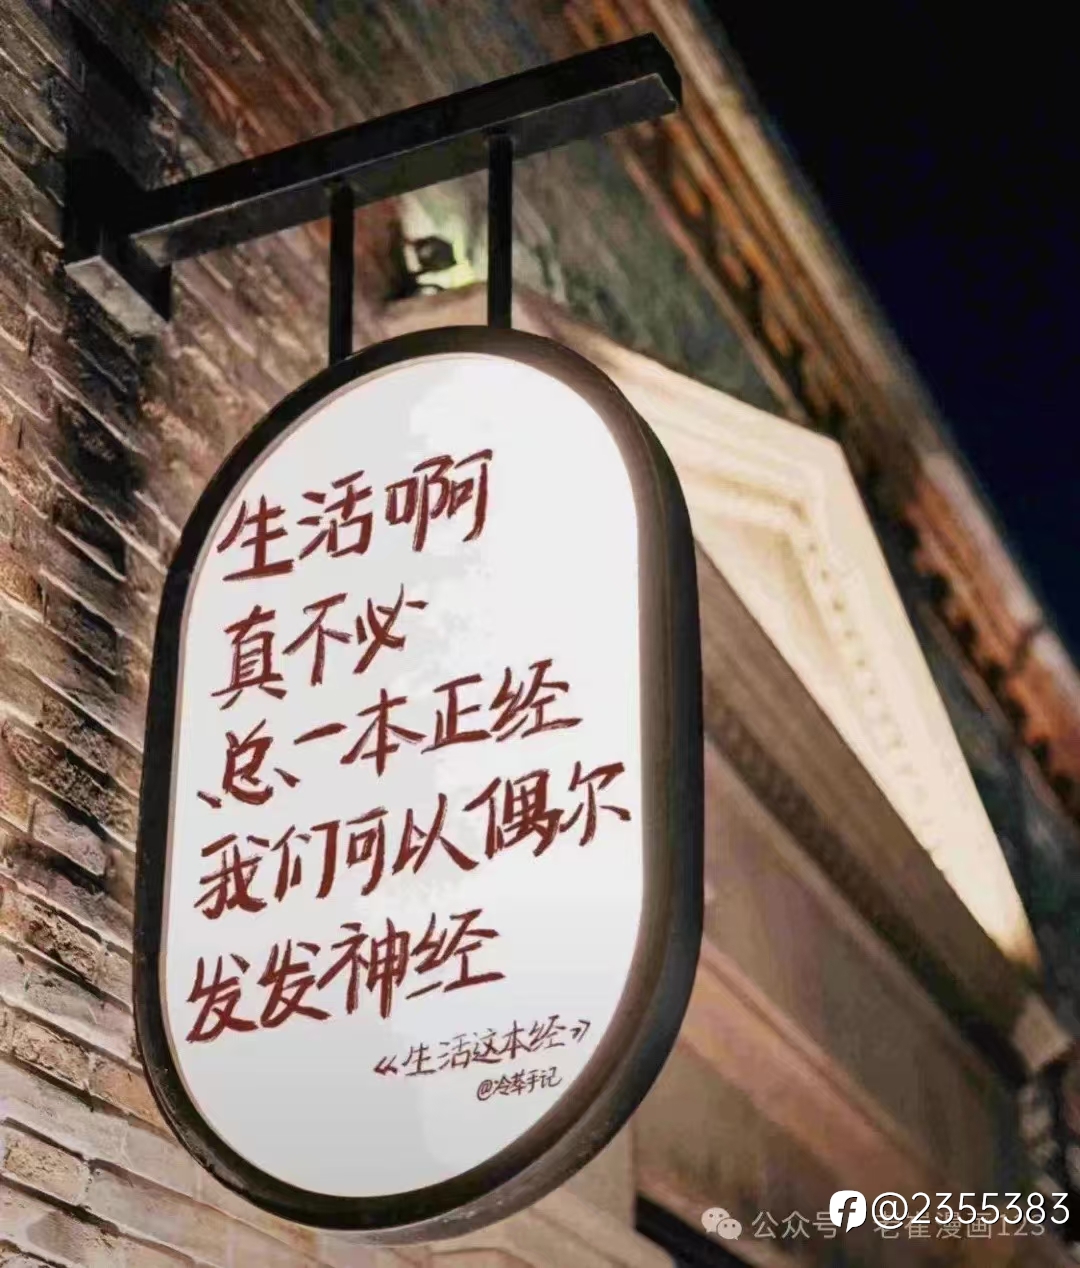 生活啊
真不必
总一本正经
我们可以偶尔
发发神经
《生活这本经》
@冷萃手记
公众号·老崔漫画123
@2355383